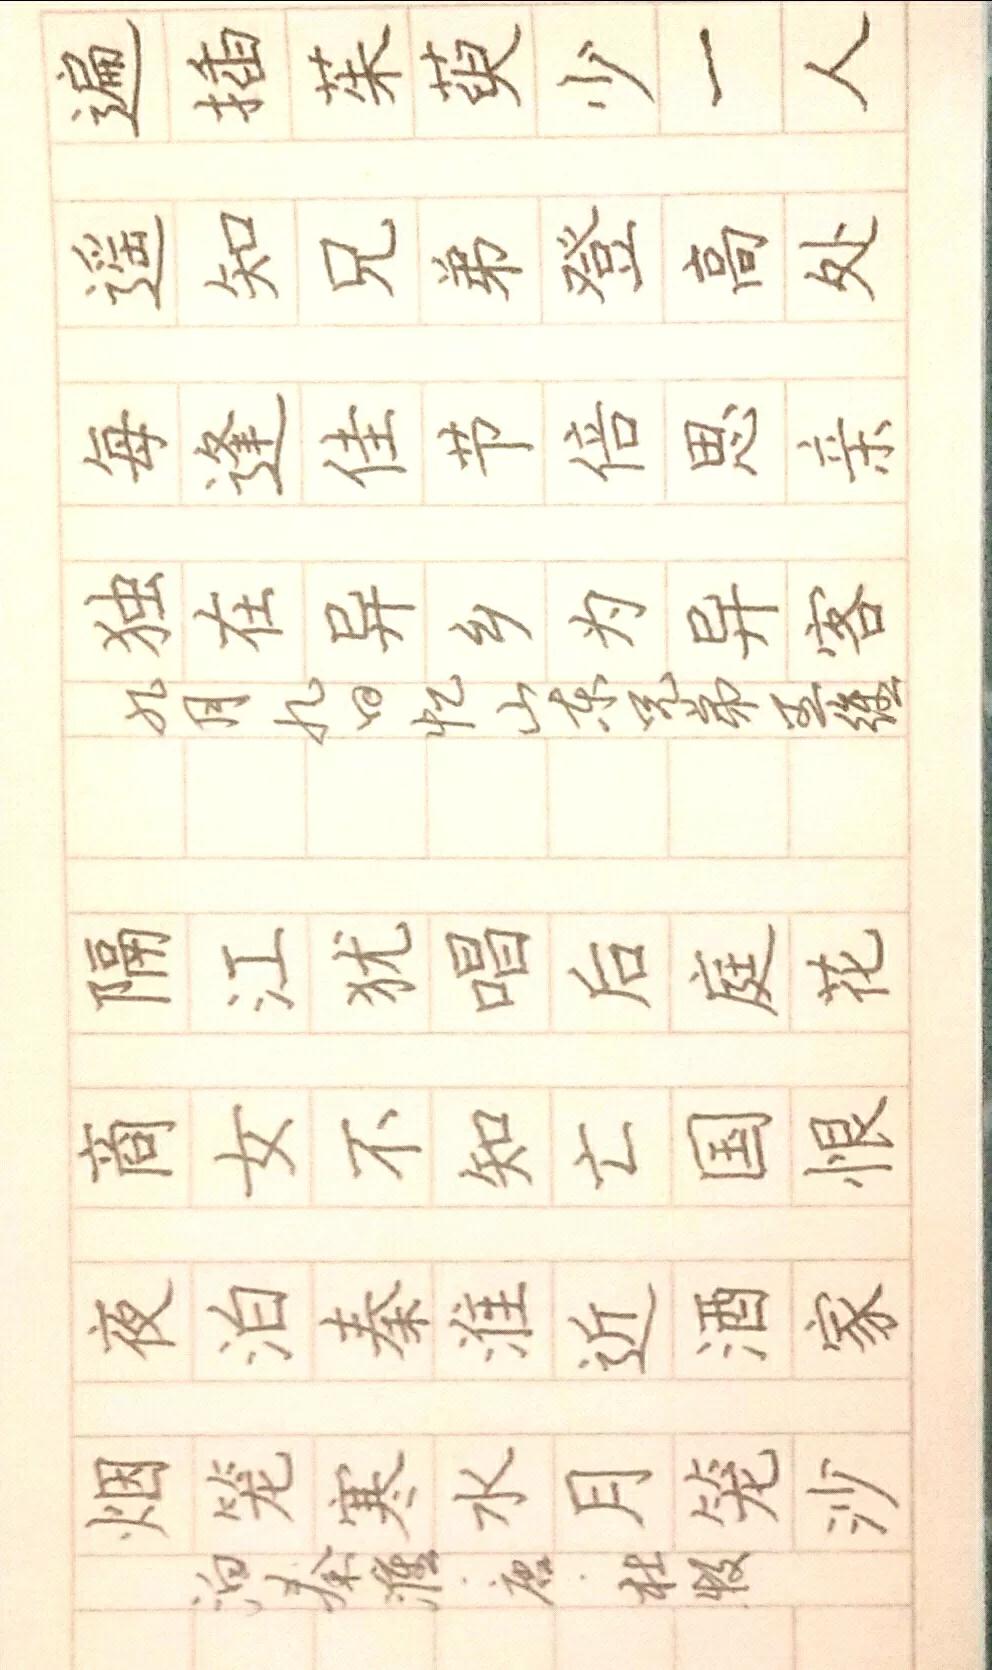 泊秦淮·唐·杜牧
烟笼寒水月笼沙
夜泊秦淮近酒家
商女不知亡国恨
隔江犹唱后庭花
九月九日忆山东兄弟王维
独在异乡为异客
每逢佳节倍思亲
遥知兄弟登高处
遍插茱萸少一人